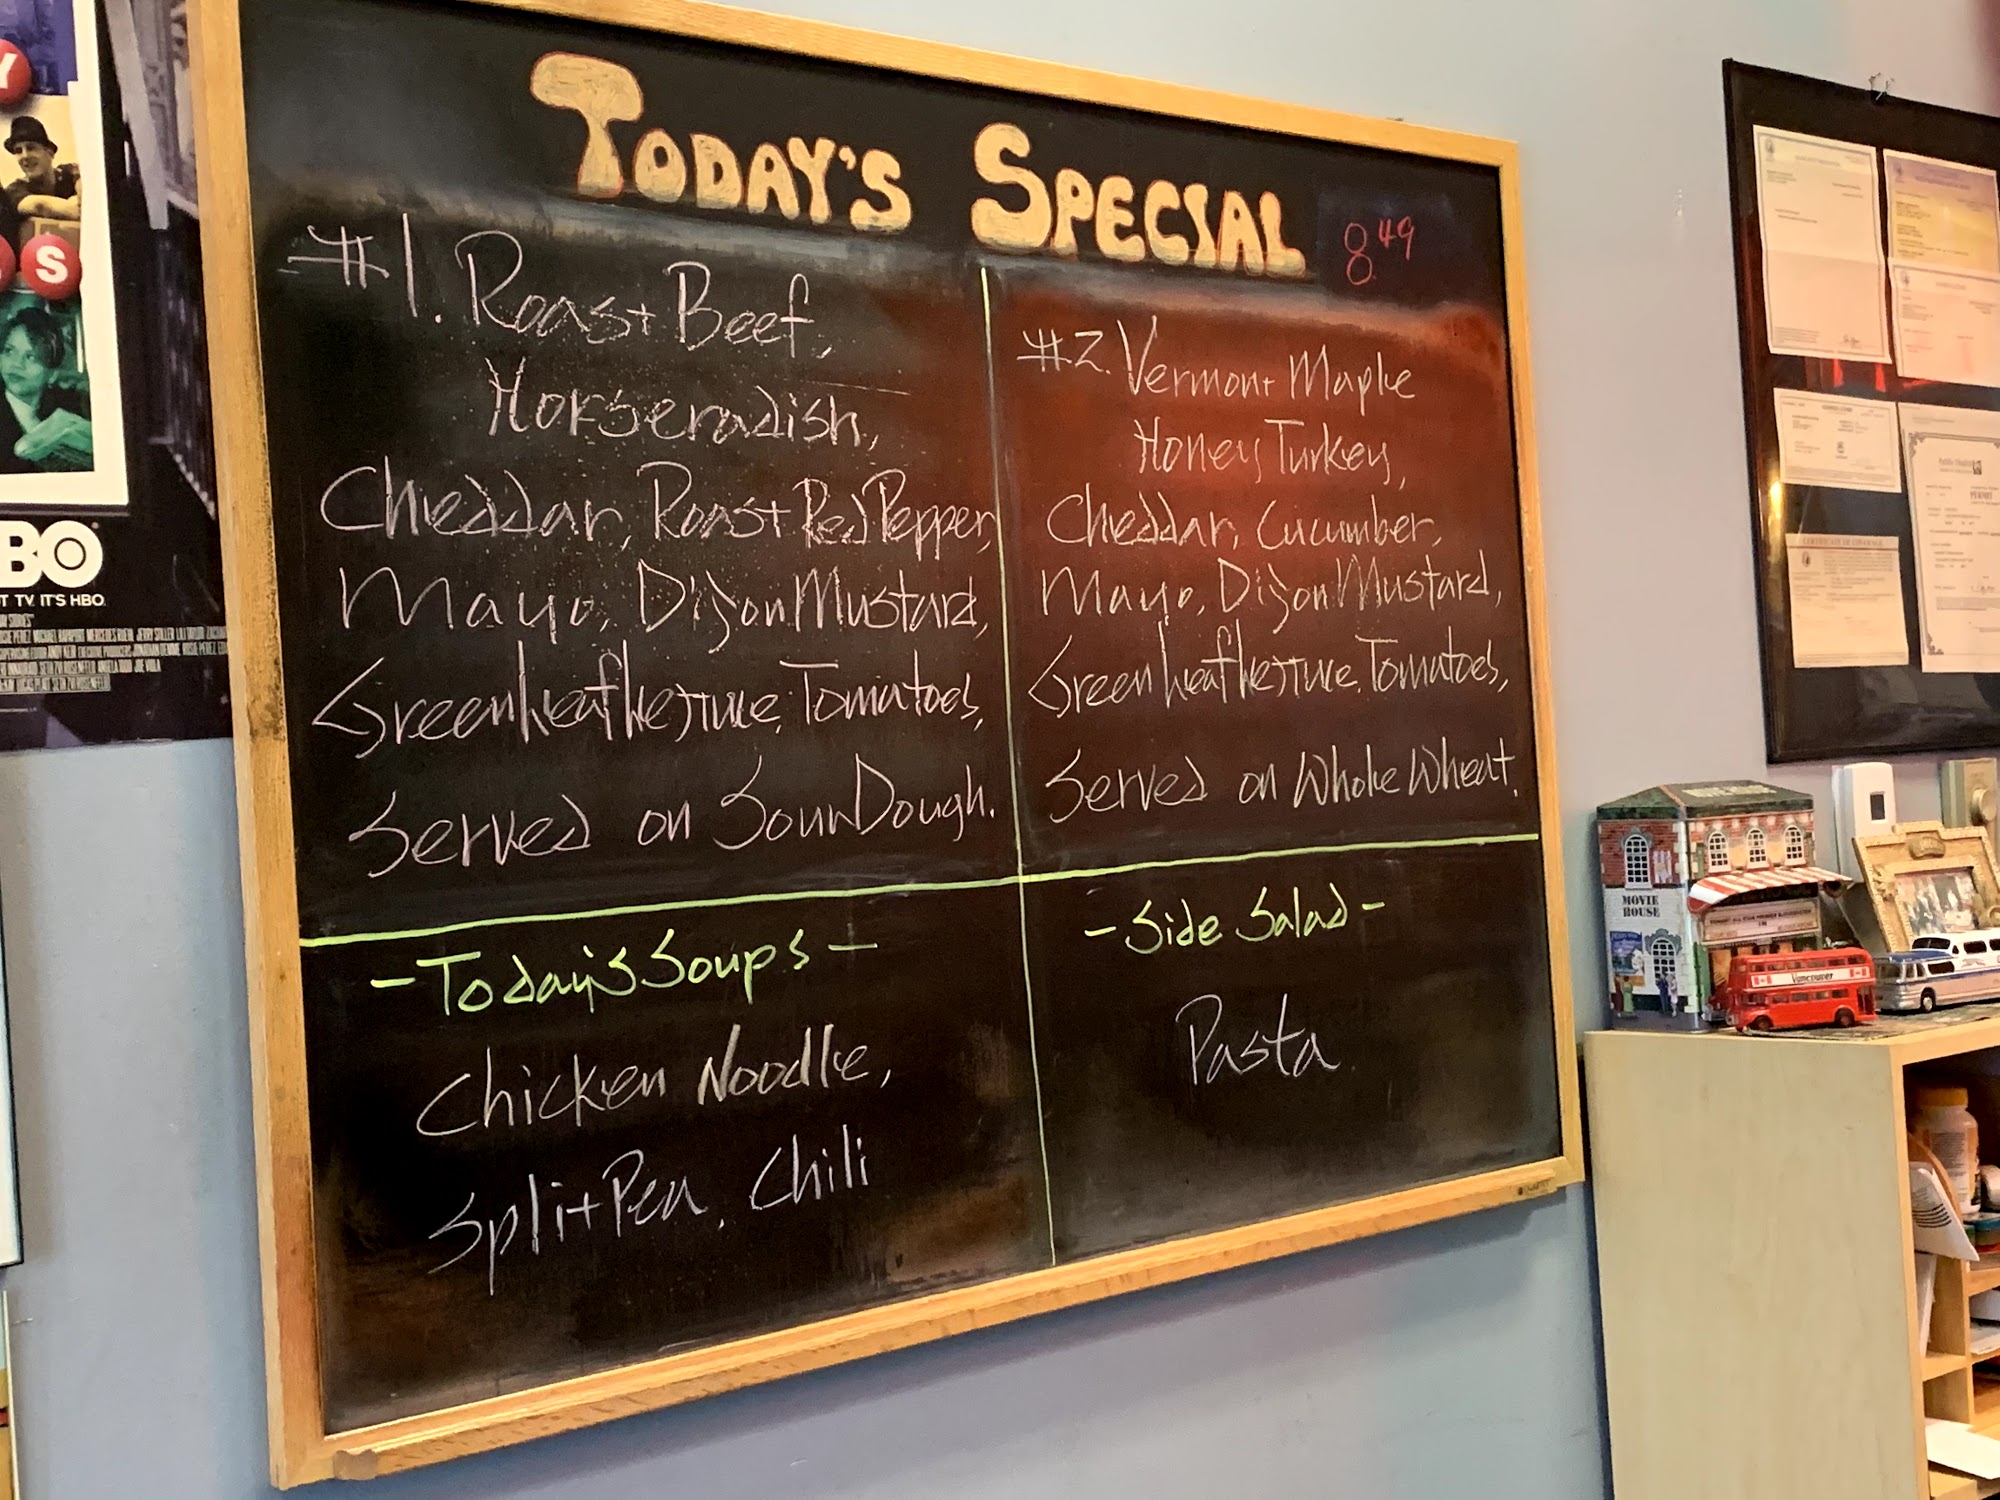 TODAY'S SPECIAL 8.49
#1. Roast Beef,
Horseradish,
Cheddar, Roast Red Pepper,
Mayo, Dijon Mustard,
Green leaf lettuce, Tomatoes,
Served on SourDough.
#2. Vermont Maple
Honey Turkey,
Cheddar, Cucumber,
Mayo, Dijon Mustard,
Green leaf lettuce, Tomatoes,
Served on Whole Wheat.
- Today's Soups -
Chicken Noodle,
Split Pea, Chili
- Side Salad -
Pasta
Y
S
BO
T TV. IT'S HBO.
MOVIE
HOUSE
Vancouver
CERTIFICATE OF COVERAGE